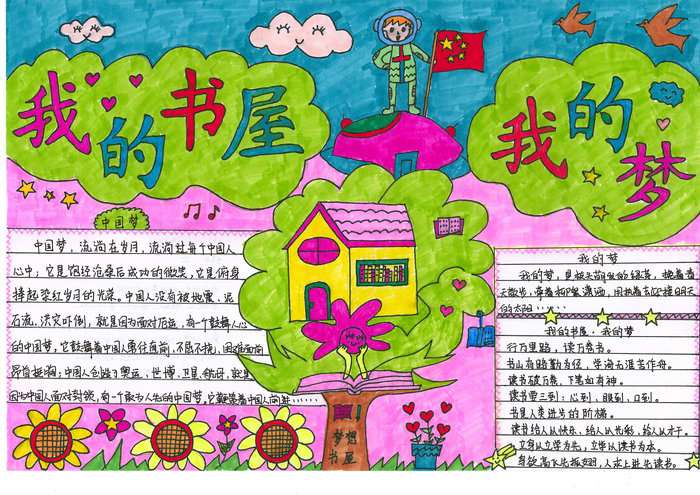 我的书屋
我的梦
中国梦
中国梦，流淌在岁月，流淌过每个中国人
心中；它是饱经沧桑后成功的微笑，它是俯身
择起染红岁月的光荣。中国人没有被地震、泥
石流、洪灾吓倒，就是因为面对厄运，有一个鼓舞人心
的中国梦，它鼓舞着中国人勇往直前，不屈不挠，困难面前
昂首挺胸；中国人创造了奥运、世博、卫星
因为中国人面对封锁，有一个敢为人先的中国梦，它
梦想
书屋
我的梦
我的梦，是
的太阳……
我的书屋·我的梦
行万里路，读万卷书。
书山有路勤为径，学海无涯苦作舟。
读书破万卷，下笔如有神。
读书要三到：心到，眼到，口到。
书是人类进步的阶梯。
读书给人以快乐、给人以光彩、给人以才干。
立身以立学为先，立学以读书为本。
鸟欲高飞先振翅，人求上进先读书。